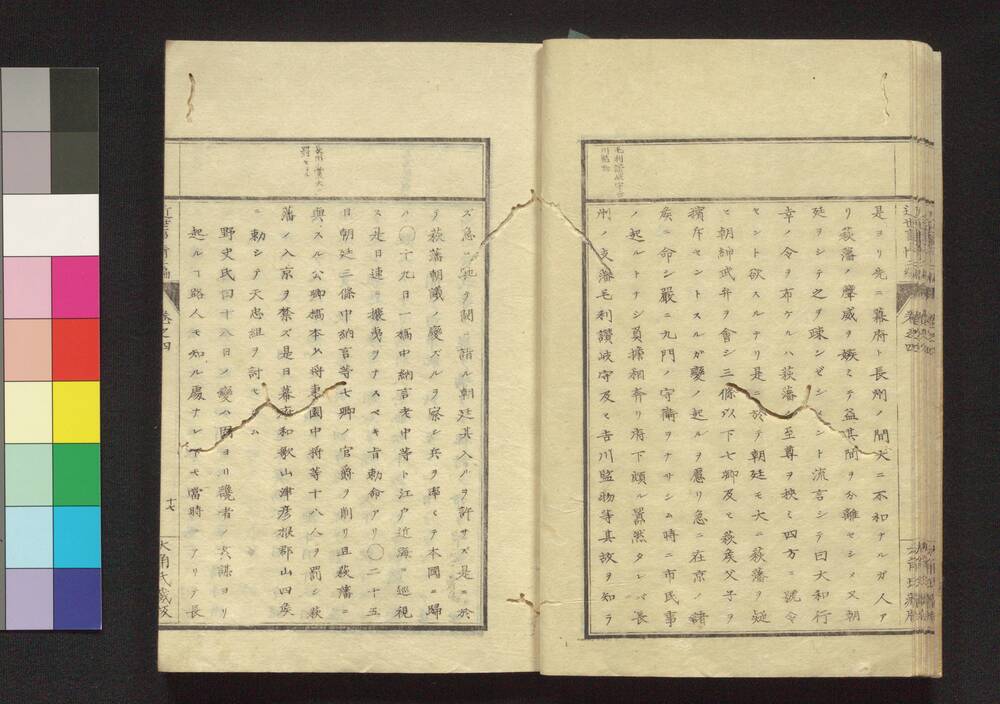 毛利讃岐守吉
川監物
是ヨリ先ニ幕府ト長州ノ間大ニ不和ナルガ人ア
リ萩藩ノ威ヲ嫉ミテ益其間ヲ分離セシメ又朝
廷ヲシテ之ヲ疎ンゼシメント流言シテ曰大和行
幸ノ令ヲ布ケルハ萩藩ノ至尊ヲ挾ミ四方ニ號令
セント欲スルナリ是ニ於テ朝廷モ大ニ萩藩ヲ疑
ヒ朝紳武弁ヲ會シ三條以下七卿及ヒ萩矦父子ヲ
擯斥セントスルガ變ノ起ルヲ慮リ急ニ在京ノ諸
矦ニ命シ嚴ニ九門ノ守衞ヲナサシム時ニ市民事
ノ起ルトナシ負擔相奔リ府下頗ル囂然タシバ長
州ノ支藩毛利讃岐守及ヒ吉川監物等其故ヲ知ラ
ズ急ニヲ開ニ詣ル朝廷其入ルヲ許サズ是ニ於
テ萩藩朝議ノ變ズルヲ察シ兵ヲ率ヒテ本國ニ歸
ハ〇十九日一橋中納言老中等ト江戸近海ニ巡視
ス是日速ニ攘夷ヲナスベキ旨勅命アリ〇二十五
日朝廷三條中納言等七卿ノ官爵ヲ削リ且萩藩ニ
與スル公卿橋本少將東園中將等十八人ヲ罰シ萩
藩ノ入京ヲ禁ズ是日幕府和歌山津彦根郡山四矦
ニ勅シテ天忠組ヲ討セシム
野史氏曰十八日ノ變ハ固ヨリ讒者ノ謀ヨリ
起ル路人モ知ル處ナレ𪜈當時ニアリテ長
卷之四
十七
大角氏藏版